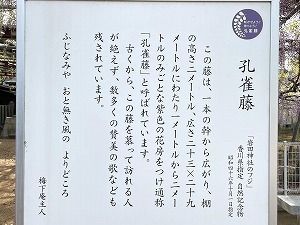 孔雀藤
「岩田神社のフジ」
香川県指定 自然記念物
昭和四十六年十月一日指定
この藤は、一本の幹から広がり、棚
の高さ二メートル、広さ二十三×二十九
メートルにわたり一メートルから二メー
トルのみごとな紫色の花房をつけ通称
「孔雀藤」と呼ばれています。
古くから、この藤を慕って訪れる人
が絶えず、数多くの賛美の歌なども
残されています。
ふじなみや おと無き風の よりどころ
梅下庵主人
孔雀藤